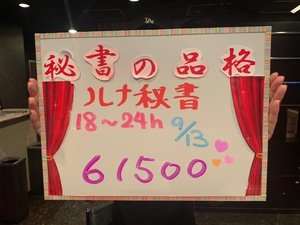 秘書の品格
ルナ秘書
18～24h 9/13
61500